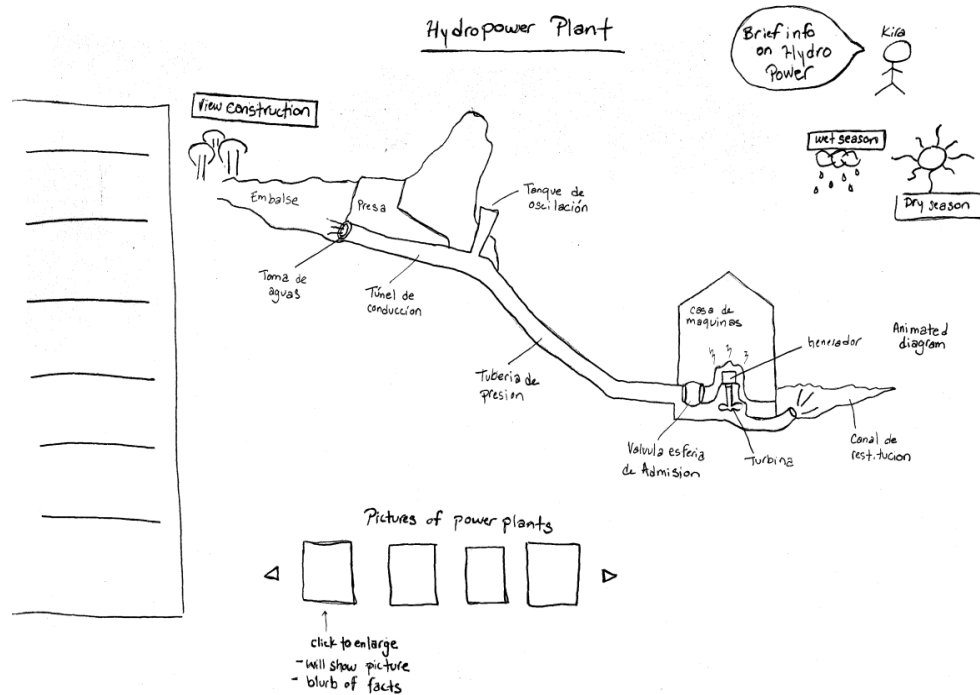 Hydropower Plant
Brief info
on Hydro
Power
Kira
View Construction
wet season
Dry season
Embalse
Presa
Tanque de
oscilación
Toma de
aguas
Túnel de
conduccion
casa de
maquinas
henerador
Animated
diagram
Tuberia de
presion
Valvula esferia
de Admision
Turbina
Canal de
restitucion
Pictures of power plants
click to enlarge
- will show picture
- blurb of facts